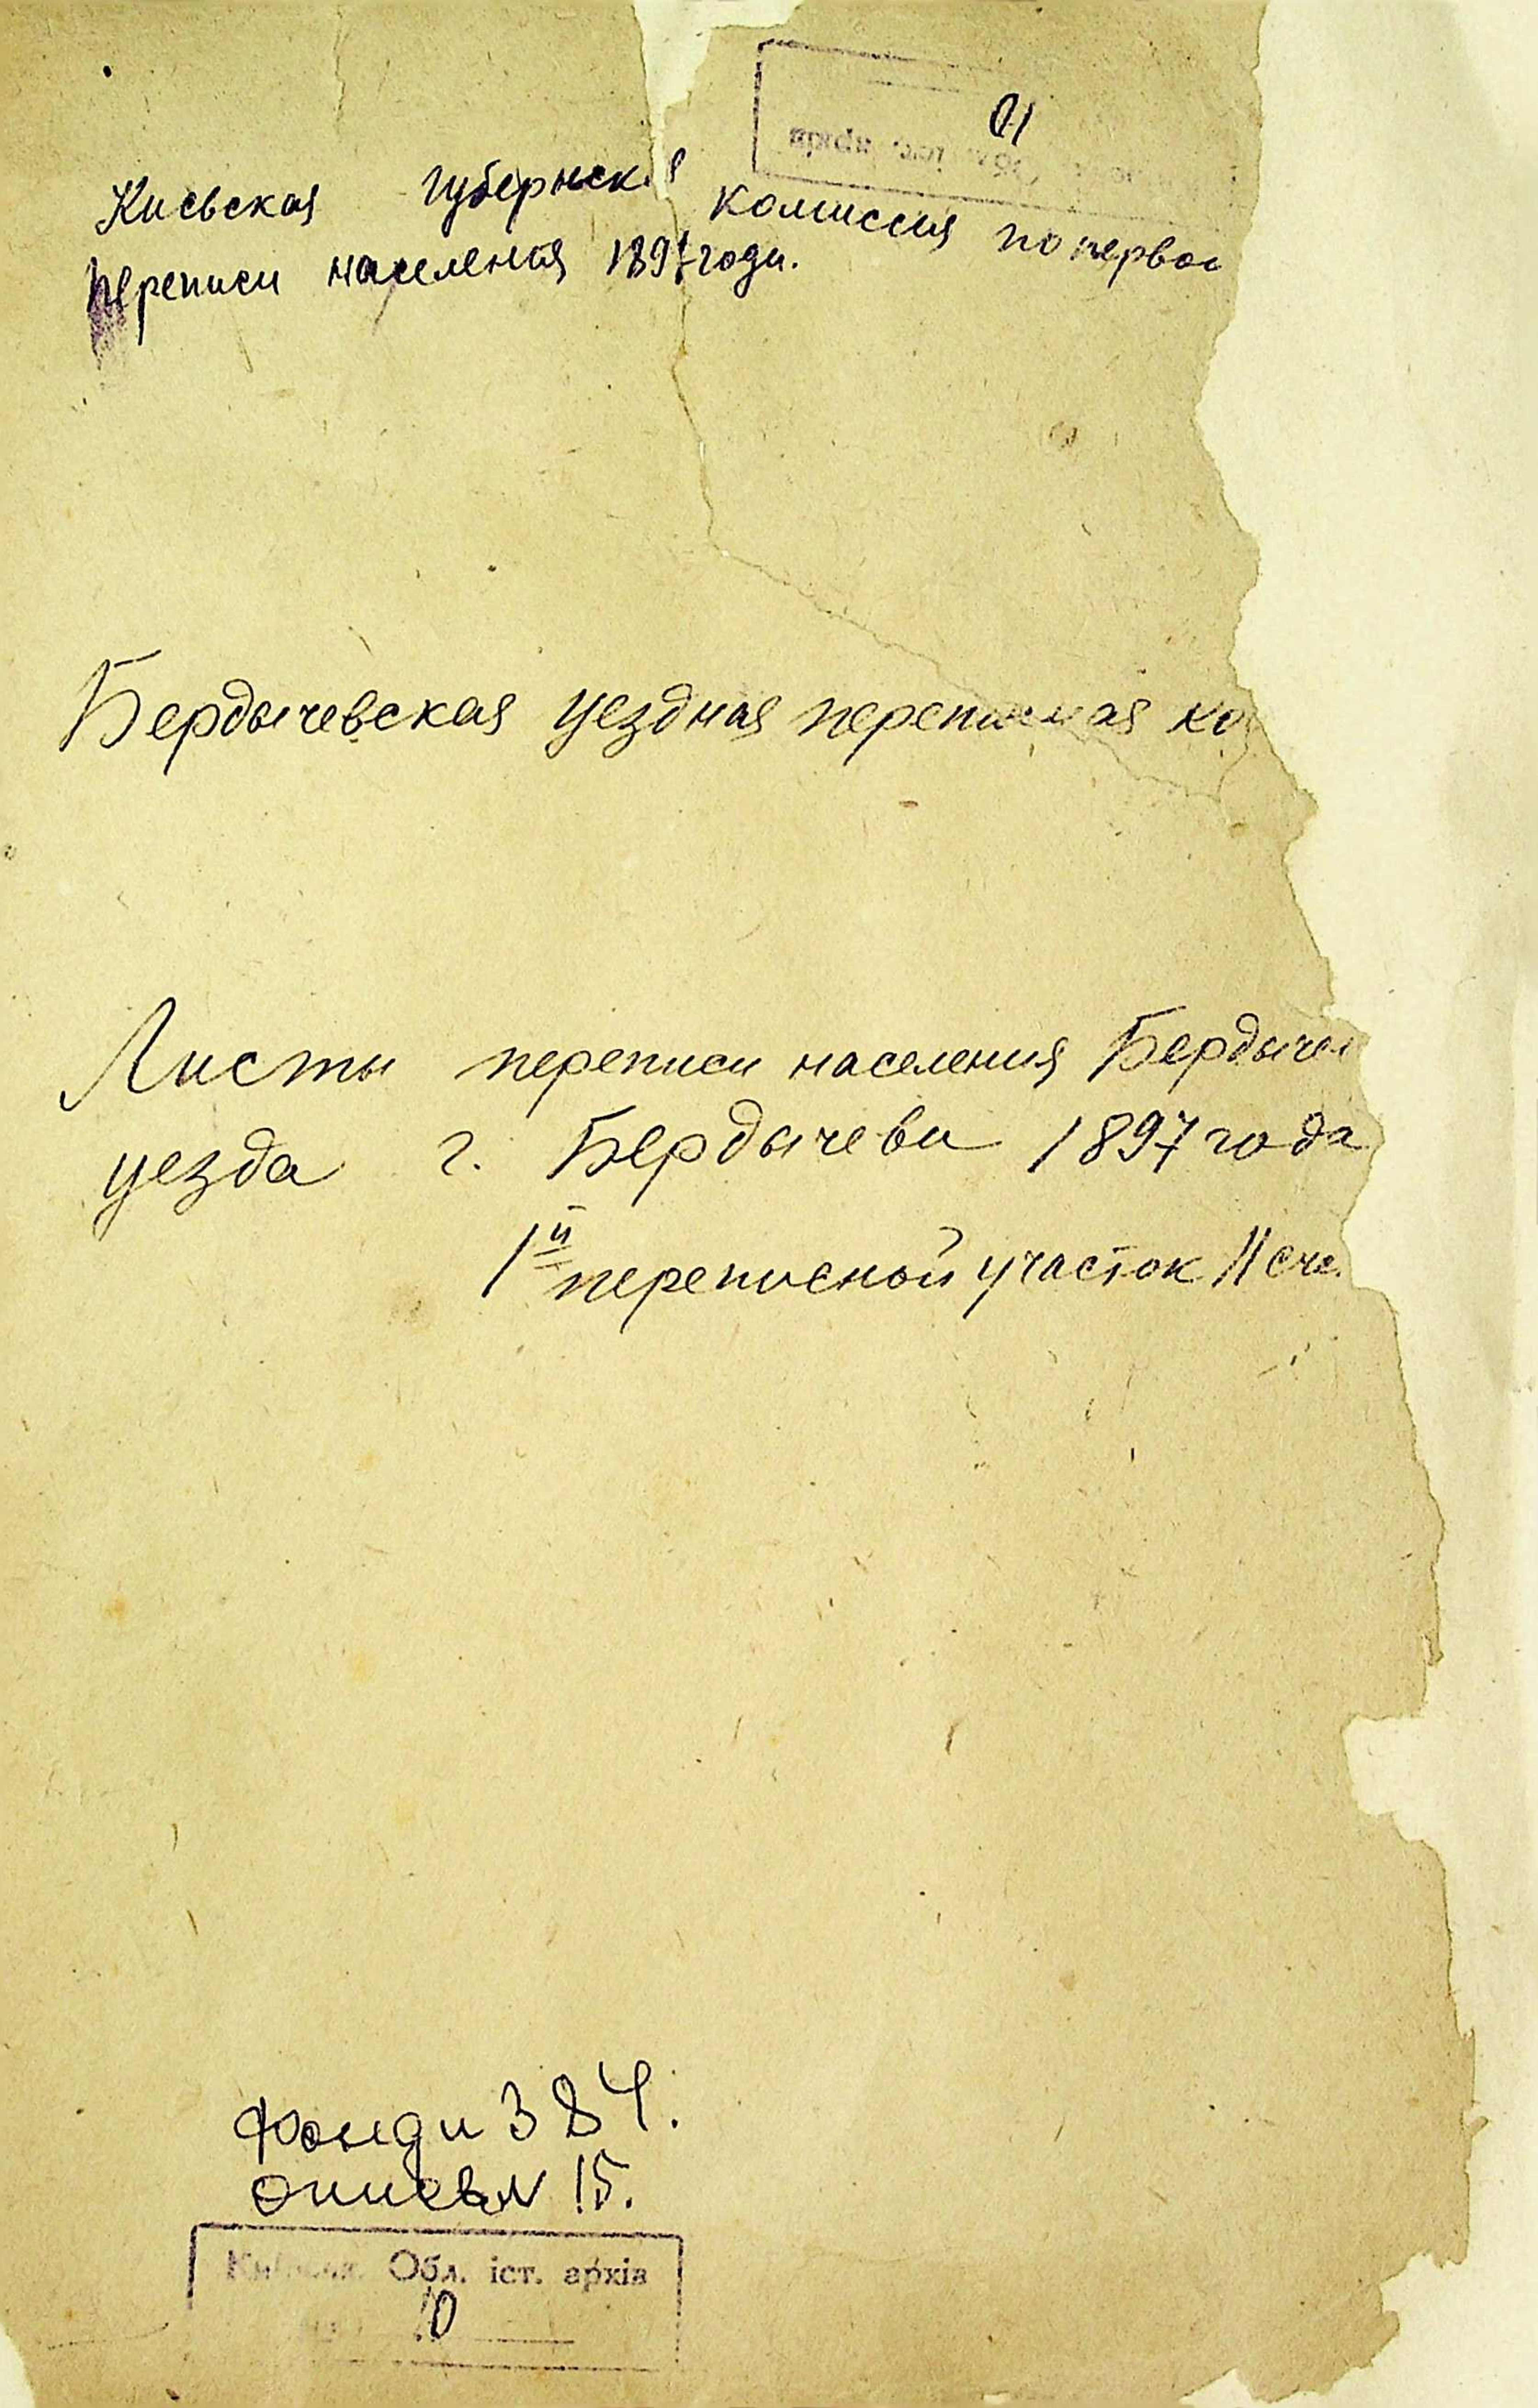 Киевская губернская комиссия по первой
переписи населения 1897 года.
Бердычевская уездная переписная ко
Листы переписи населения Бердычев
уезда г. Бердычева 1897 года
1й переписной участок 11 сче
Фонд № 384.
опись № 15.
Обл. іст. архів
10